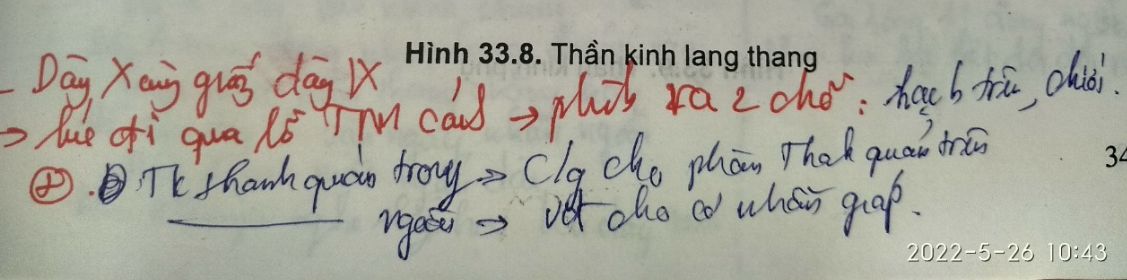 Hình 33.8. Thần kinh lang thang
- Dây X cũng giống dây IX
→ lúc đi qua lỗ TM cảnh → phình ra 2 chỗ: hạch trên, dưới.
TK thanh quản trong → C/g cho phần Thanh quản trên
34
ngoài → vđ cho cơ nhẫn giáp.
2022-5-26 10:43